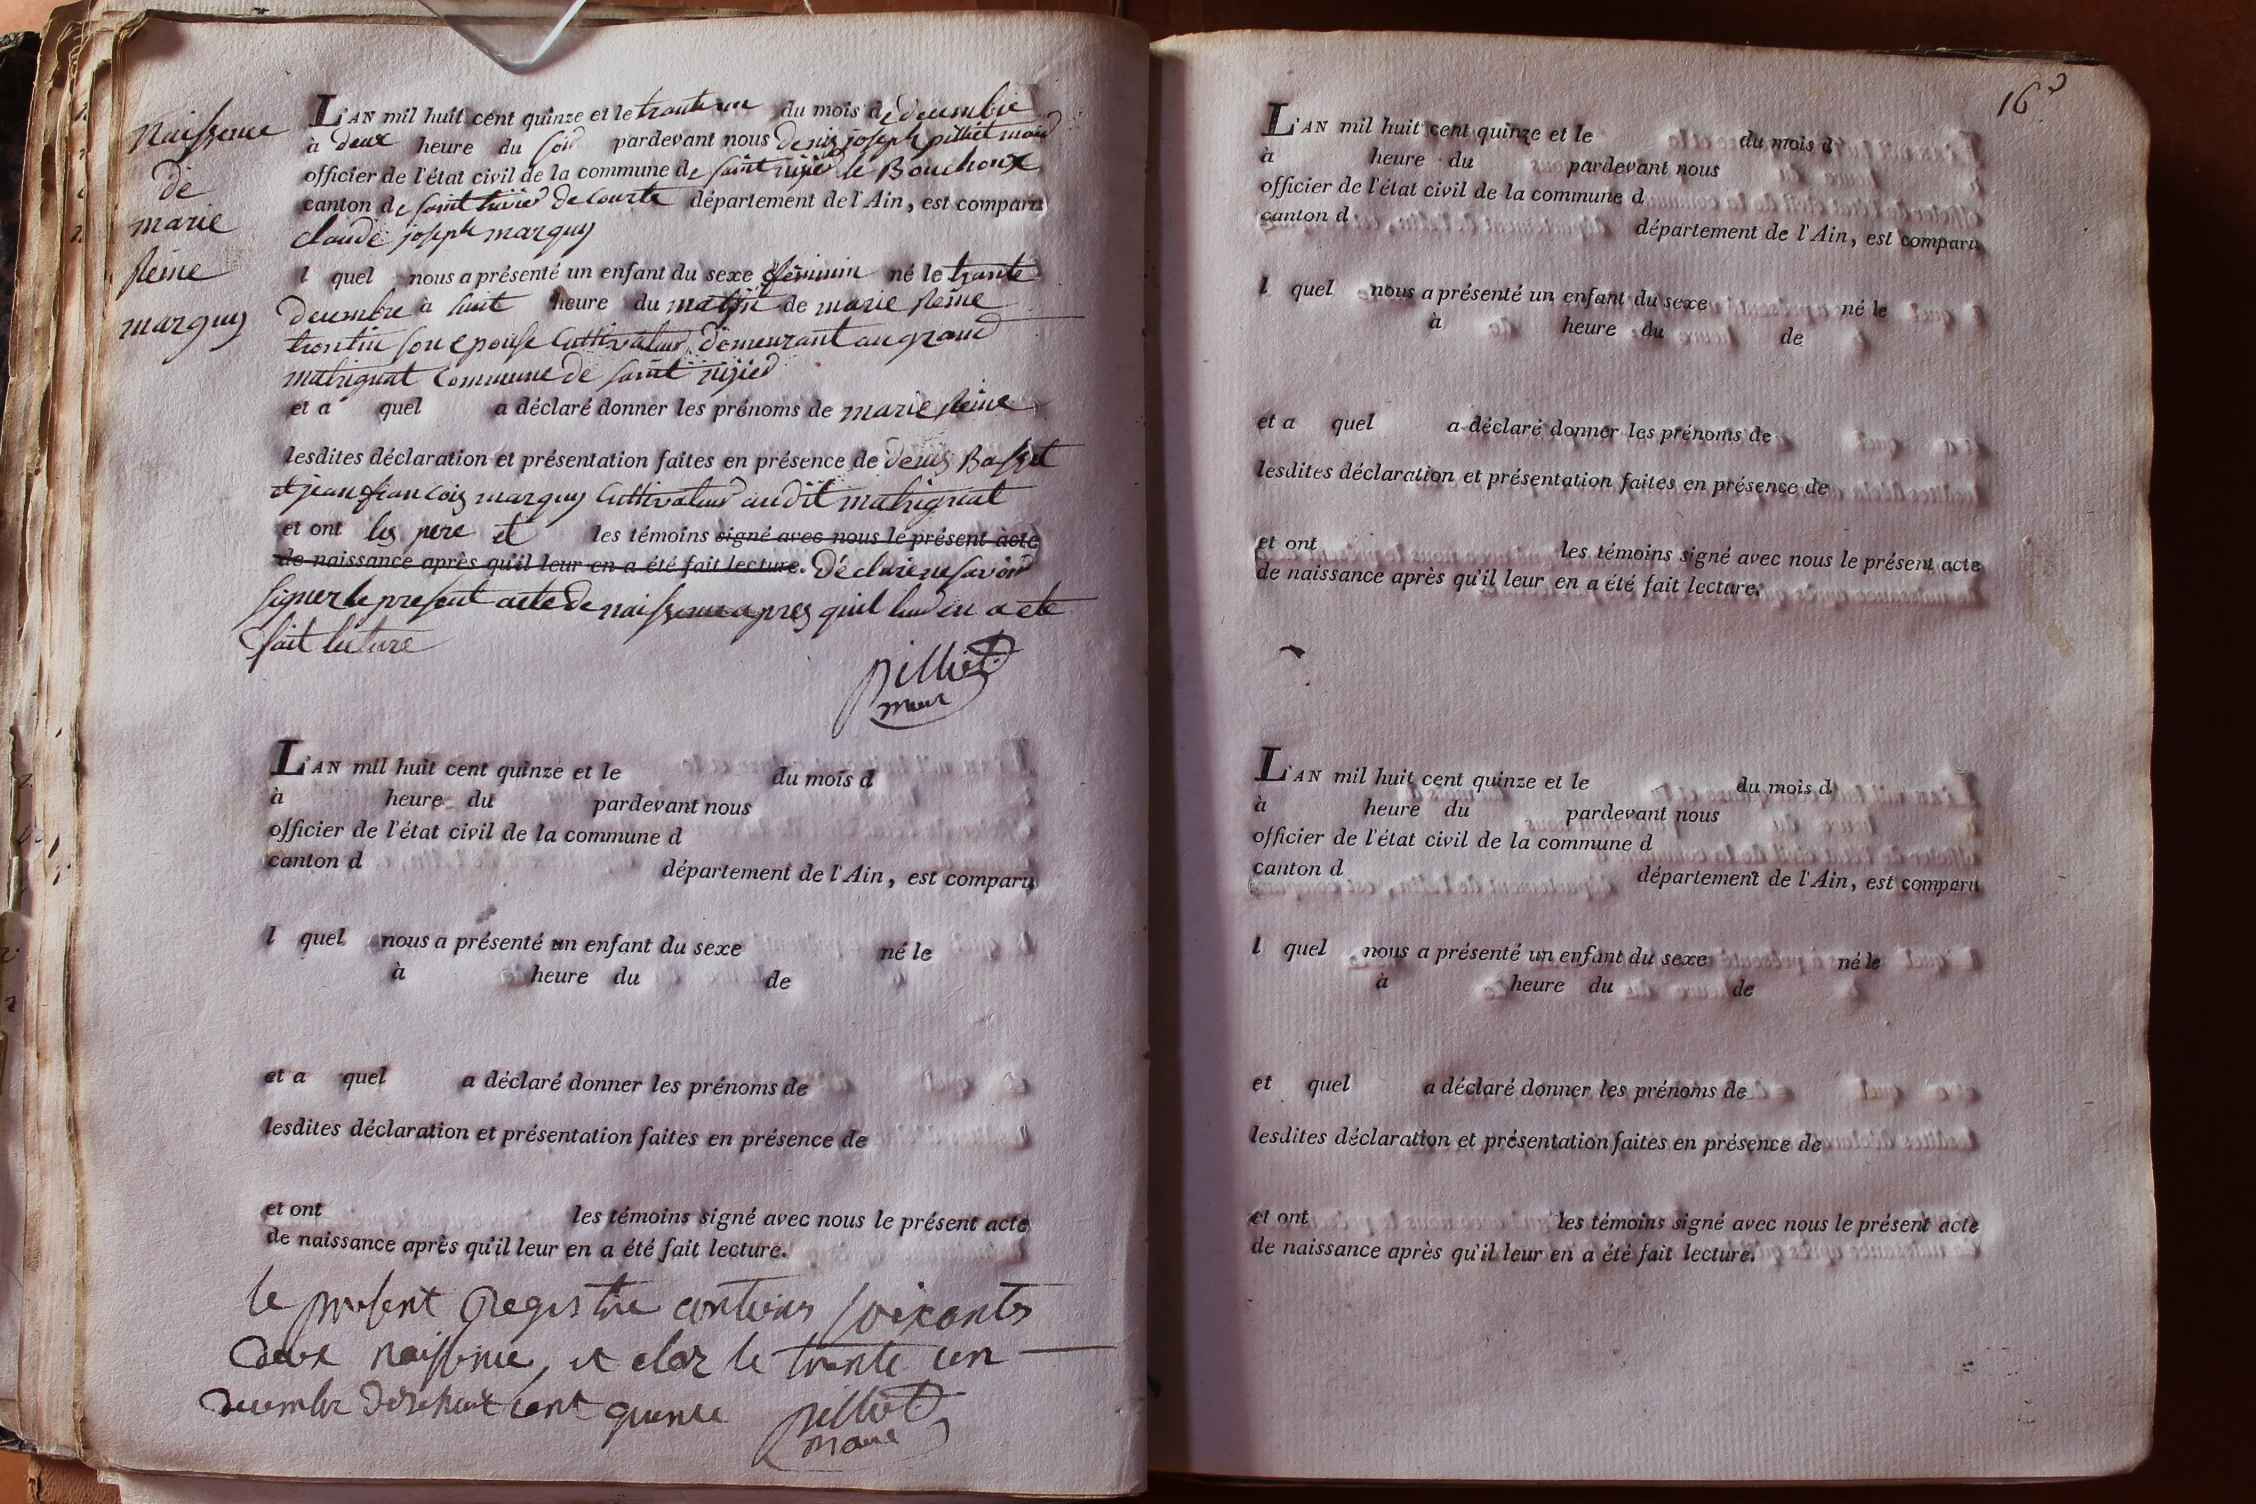 Naissence
de
marie
Reine
marguy
L'AN mil huit cent quinze et le trante un du mois de decembre
à deux heure du soir pardevant nous denis joseph pilliet maire
officier de l'état civil de la commune de saint nizier le Bouchoux
canton de saint trivier de courte département de l'Ain, est comparu
claude joseph marguy
l quel nous a présenté un enfant du sexe feminin né le trante
decembre à huit heure du matin de marie Reine
trontin son epouse Cultivateur demeurant au grand
matrignat commune de saint nizier
et a quel a déclaré donner les prénoms de marie Reine
lesdites déclaration et présentation faites en présence de denis Basset
et jean francois marguy Cultivateur audit matrignat
et ont les pere et les témoins signé avec nous le présent acte
de naissance après qu'il leur en a été fait lecture. Déclare ne savoir
signer le present acte de naissence apres quil leur en a ete
fait lecture
pilliet
maire
L'AN mil huit cent quinze et le du mois d
à heure du pardevant nous
officier de l'état civil de la commune d
canton d département de l'Ain, est comparu
l quel nous a présenté un enfant du sexe né le
à heure du de
et a quel a déclaré donner les prénoms de
lesdites déclaration et présentation faites en présence de
et ont les témoins signé avec nous le présent acte
de naissance après qu'il leur en a été fait lecture.
le present Registre contiens soixante
deux naissence, et clos le trente un
decembre dixe huit cent quinze pilliet
maire
16
L'AN mil huit cent quinze et le du mois d
à heure du pardevant nous
officier de l'état civil de la commune d
canton d département de l'Ain, est comparu
l quel nous a présenté un enfant du sexe né le
à heure du de
et a quel a déclaré donner les prénoms de
lesdites déclaration et présentation faites en présence de
et ont les témoins signé avec nous le présent acte
de naissance après qu'il leur en a été fait lecture.
L'AN mil huit cent quinze et le du mois d
à heure du pardevant nous
officier de l'état civil de la commune d
canton d département de l'Ain, est comparu
l quel nous a présenté un enfant du sexe né le
à heure du de
et quel a déclaré donner les prénoms de
lesdites déclaration et présentation faites en présence de
et ont les témoins signé avec nous le présent acte
de naissance après qu'il leur en a été fait lecture.